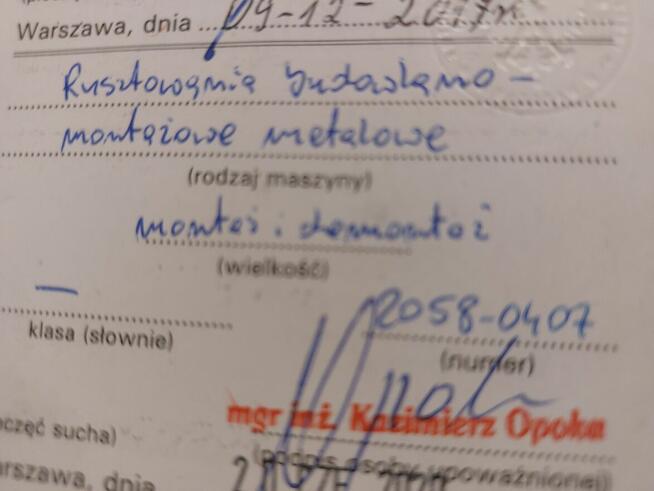 Warszawa, dnia 09-12-2017r
Rusztowania budowlano-
montażowe metalowe
(rodzaj maszyny)
montaż i demontaż
(wielkość)
—
klasa (słownie)
2058-0407
(numer)
mgr inż. Kazimierz Opoka
(podpis osoby upoważnionej)